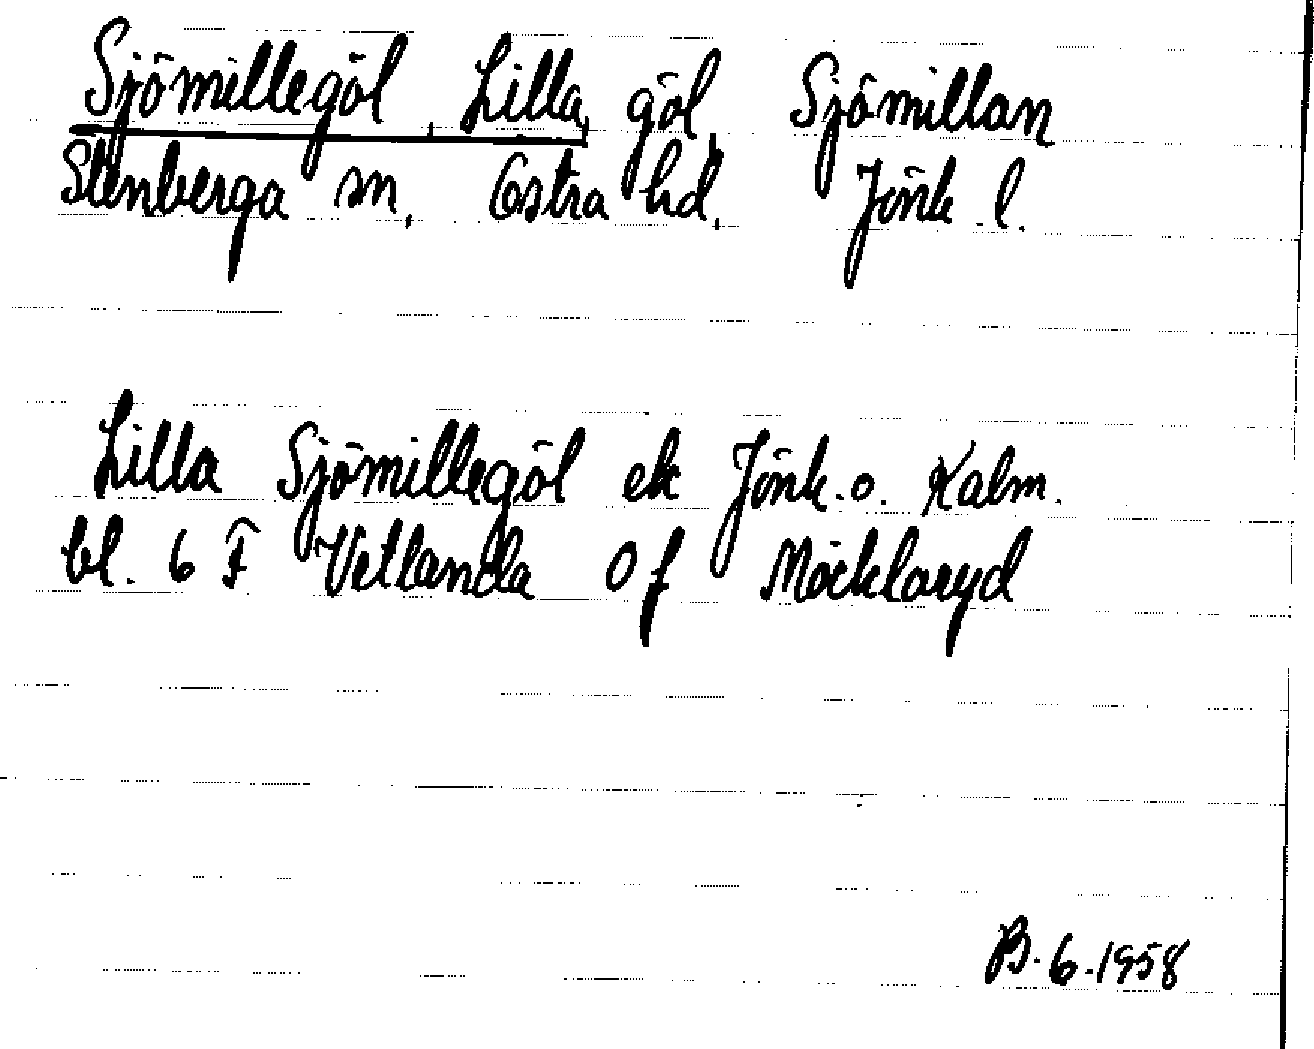 Sjömillegöl, Lilla, göl, Sjömillan
Stenberga sn, Östra hd, Jönk. l.
Lilla Sjömillegöl ek Jönk. o. Kalm.
bl. 6 F Vetlanda 0 f Möcklaryd
B. 6. 1958